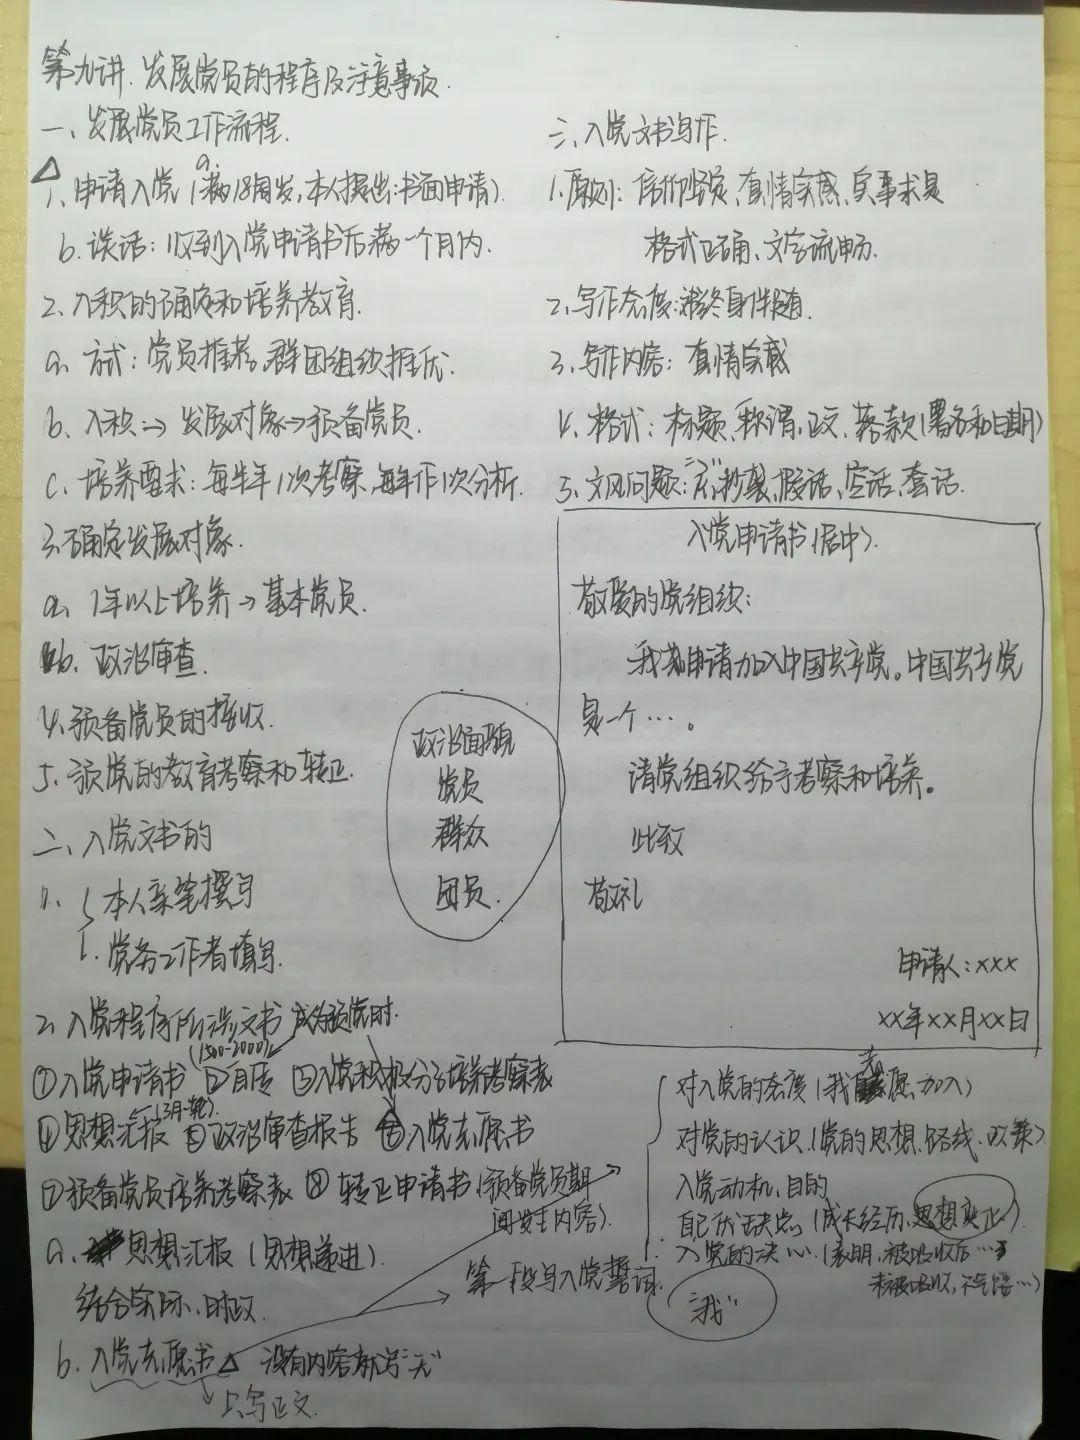 第九讲.发展党员的程序及注意事项.
一、发展党员工作流程.
△
1、申请入党(a.满18周岁,本人提出:书面申请)
b.谈话:收到入党申请书后满一个月内.
2、入积的确定和培养教育.
a、方式:党员推荐,群团组织推优.
b、入积→发展对象→预备党员.
c、培养要求:每半年1次考察,每年作1次分析.
3、确定发展对象.
a、1年以上培养→基本党员.
b、政治审查.
4、预备党员的接收.
5、预党的教育考察和转正.
二、入党文书的
1、本人亲笔撰写
党务工作者填写.
2、入党程序所涉文书 成为预党时.
①入党申请书 (1500-2000) ②自传 ③入党积极分子培养考察表
④思想汇报(3月一轮). ⑤政治审查报告 ⑥入党志愿书
⑦预备党员培养考察表 ⑧转正申请书(预备党员期
间发生内容).
a、思想汇报(思想递进).
结合实际、时政.
b、入党志愿书△ 没有内容就写“无”
只写正文.
第一段写入党誓词.
政治面貌
党员
群众
团员.
三、入党文书写作.
1、原则:信仰坚定、真情实感、实事求是
格式正确、文字流畅.
2、写作态度:终身伴随.
3、写作内容:真情实感
4、格式:标题、称谓、正文、落款(署名和日期)
5、文风问题:“三不”,抄袭,假话、空话、套话.
入党申请书(居中).
敬爱的党组织:
我志申请加入中国共产党。中国共产党
是一个…。
请党组织给予考察和培养。
此致
敬礼
申请人:xxx
xx年xx月xx日
对入党的态度(我志愿加入)
对党的认识(党的思想、路线、政策)
入党动机、目的
自己优缺点(成长经历、思想变化).
入党的决…(表明,被吸收后…
未被吸收,不气馁…)
“我”